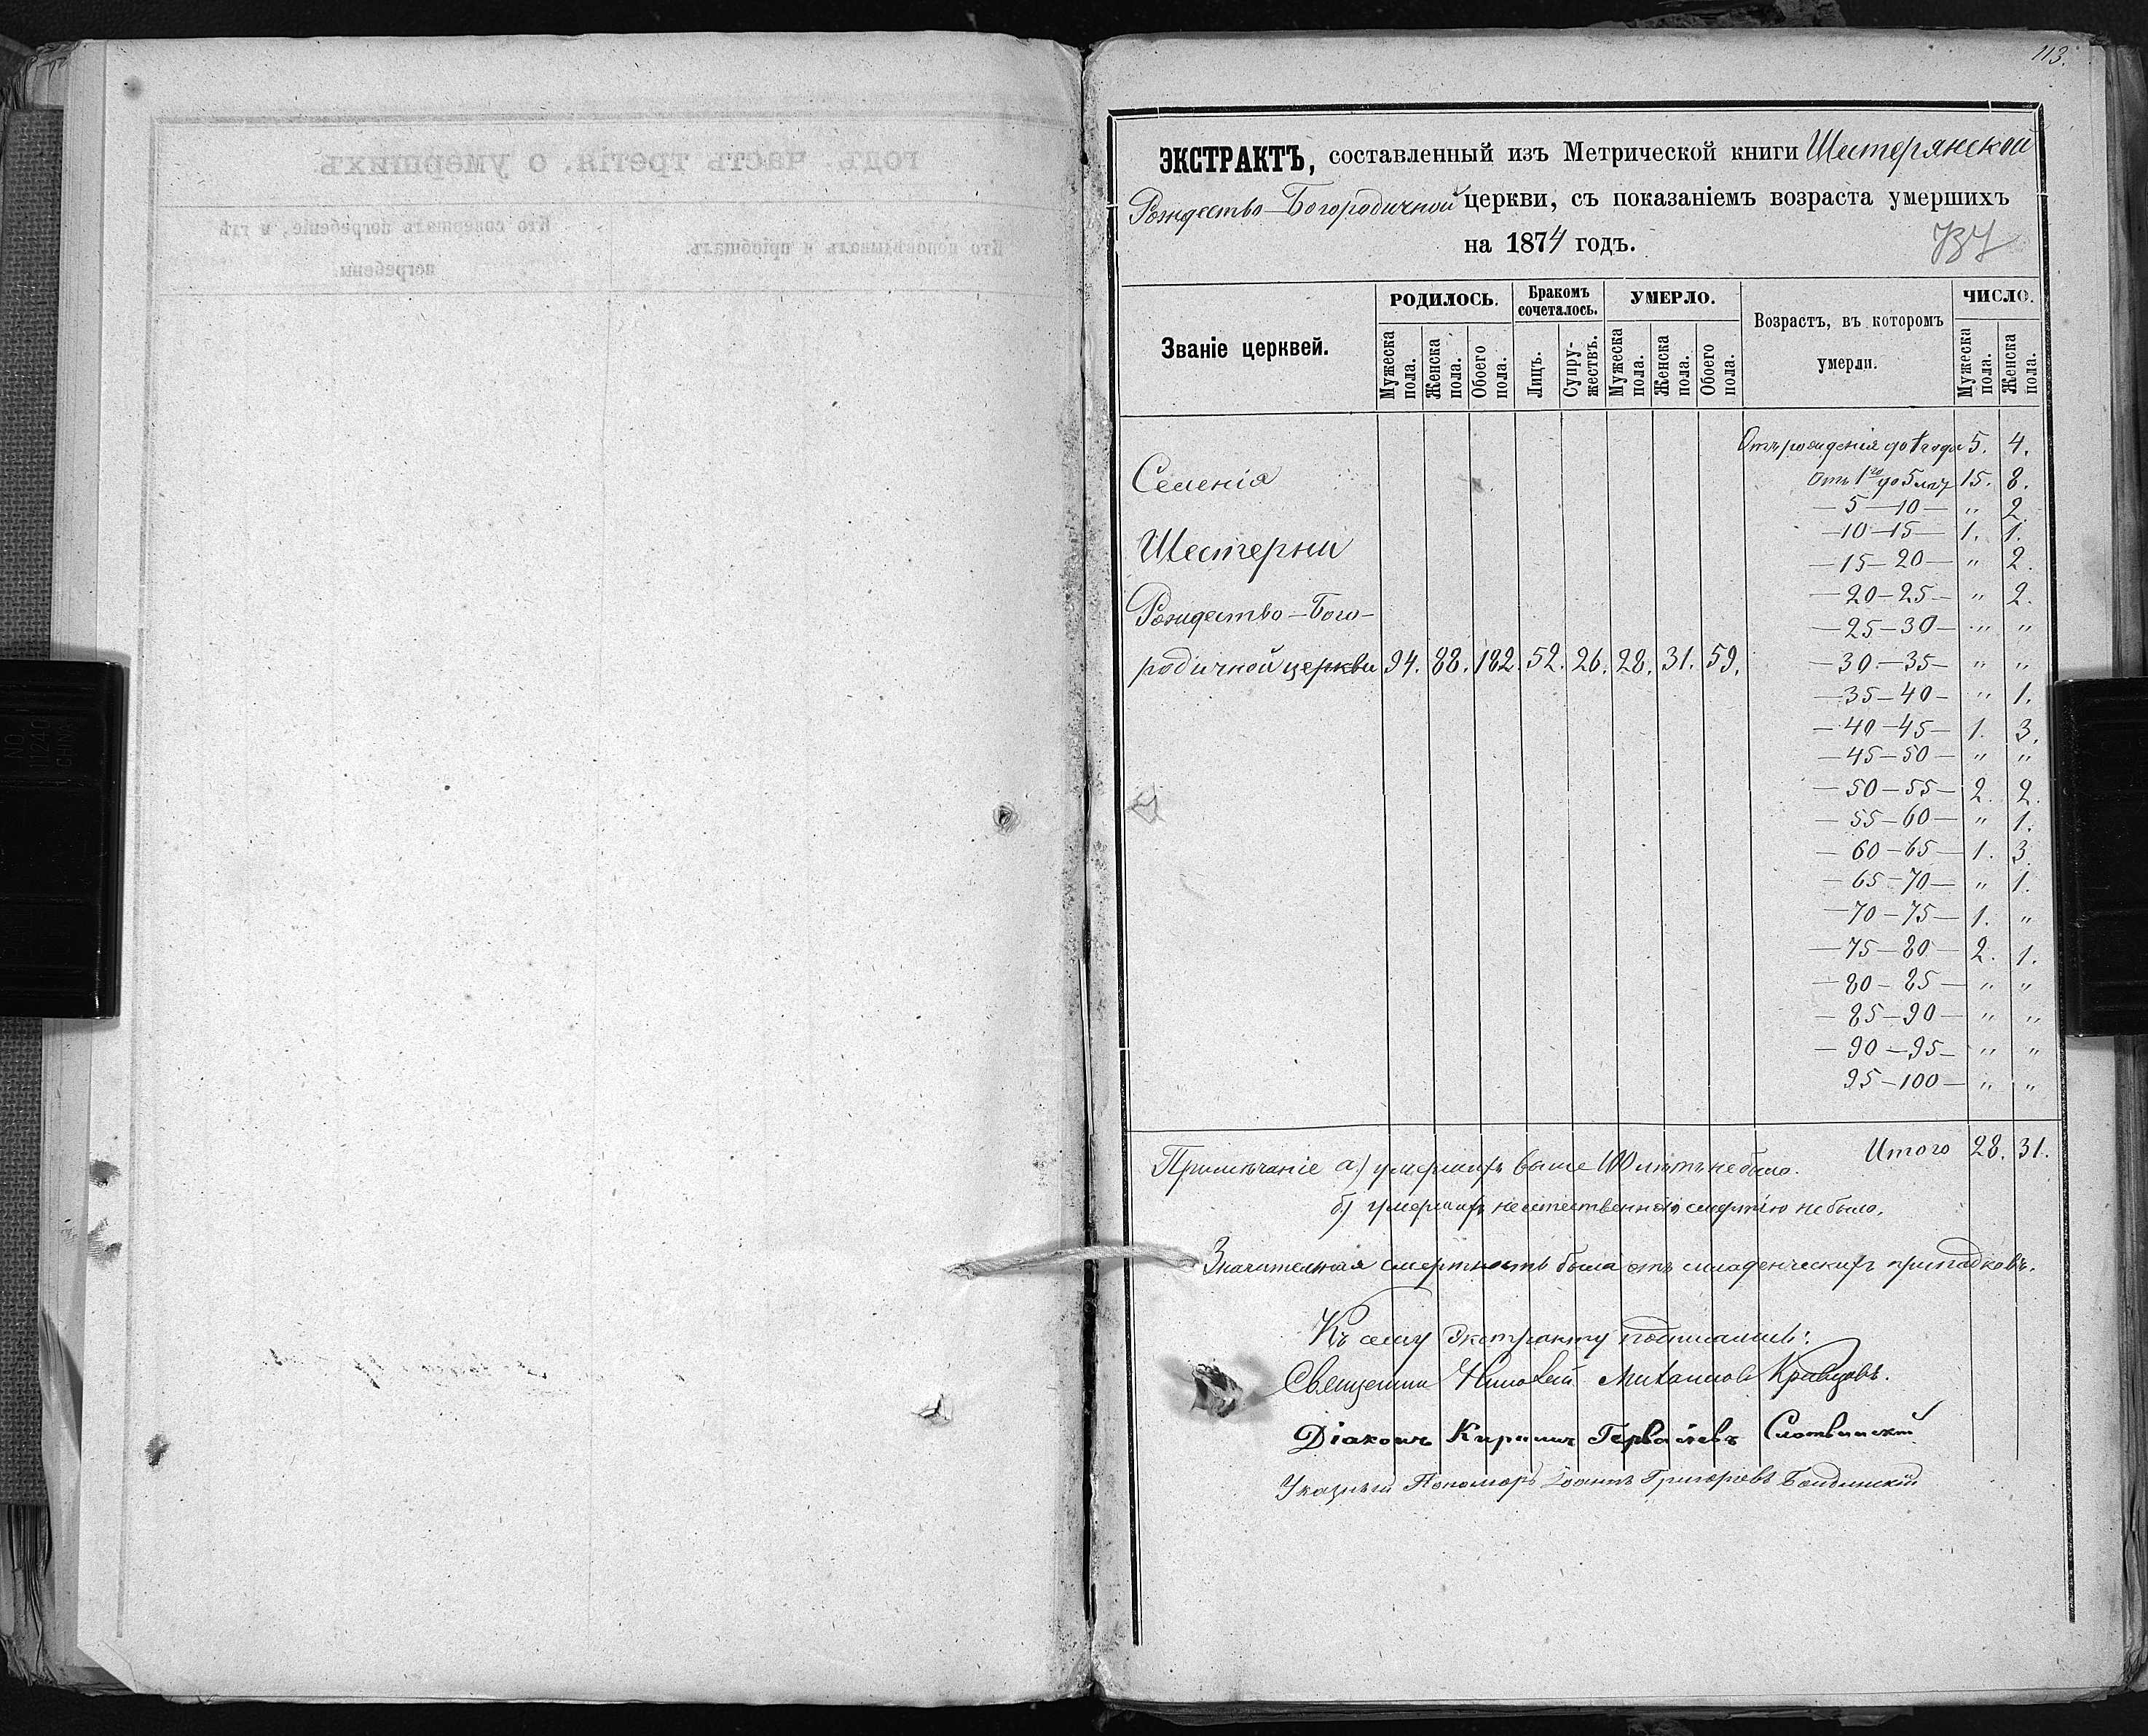 113.
ЭКСТРАКТЪ, составленный изъ Метрической книги Шестерянской
Рождество-Богородичной церкви, съ показаніемъ возраста умершихъ
на 1874 годъ.
737
Званіе церквей.
РОДИЛОСЬ.
Бракомъ сочеталось.
УМЕРЛО.
Возрастъ, въ которомъ умерли.
ЧИСЛО.
Мужеска пола.
Женска пола.
Обоего пола.
Лицъ.
Супружествъ.
Мужеска пола.
Женска пола.
Обоего пола.
Мужеска пола.
Женска пола.
Отъ рожденія до 1 года 5. 4.
Селенія
Отъ 1го до 5 лѣт 15. 8.
— 5 — 10 — " 2.
Шестерни
— 10 — 15 — 1. 1.
— 15 — 20 — " 2.
Рождество-Бого-
— 20 — 25 — " 2.
— 25 — 30 — " "
родичной церкви 94. 88. 182. 52. 26. 28. 31. 59. — 30 — 35 — " "
— 35 — 40 — " 1.
— 40 — 45 — 1. 3.
— 45 — 50 — " "
— 50 — 55 — 2. 2.
— 55 — 60 — " 1.
— 60 — 65 — 1. 3.
— 65 — 70 — " 1.
— 70 — 75 — 1. "
— 75 — 80 — 2. 1.
— 80 — 85 — " "
— 85 — 90 — " "
— 90 — 95 — " "
95 — 100 — " "
Итого 28. 31.
Примѣчаніе а) умершихъ выше 100 лѣтъ не было.
б) умершихъ неестественною смертію не было.
Значительная смертность была отъ младенческихъ припадковъ.
Къ сему экстракту подписались:
Священникъ Михаиловъ Кравцовъ.
Діаконъ Кириллъ Гервасіевъ Слотвинскій
Указный Пономарь Іоаннъ Григорьевъ Бондинскій
годъ, часть третія, о умершихъ
Кто исповѣдывалъ и пріобщалъ.
Кто совершалъ погребеніе, и гдѣ
погребены.
NO. 11240
CHINA